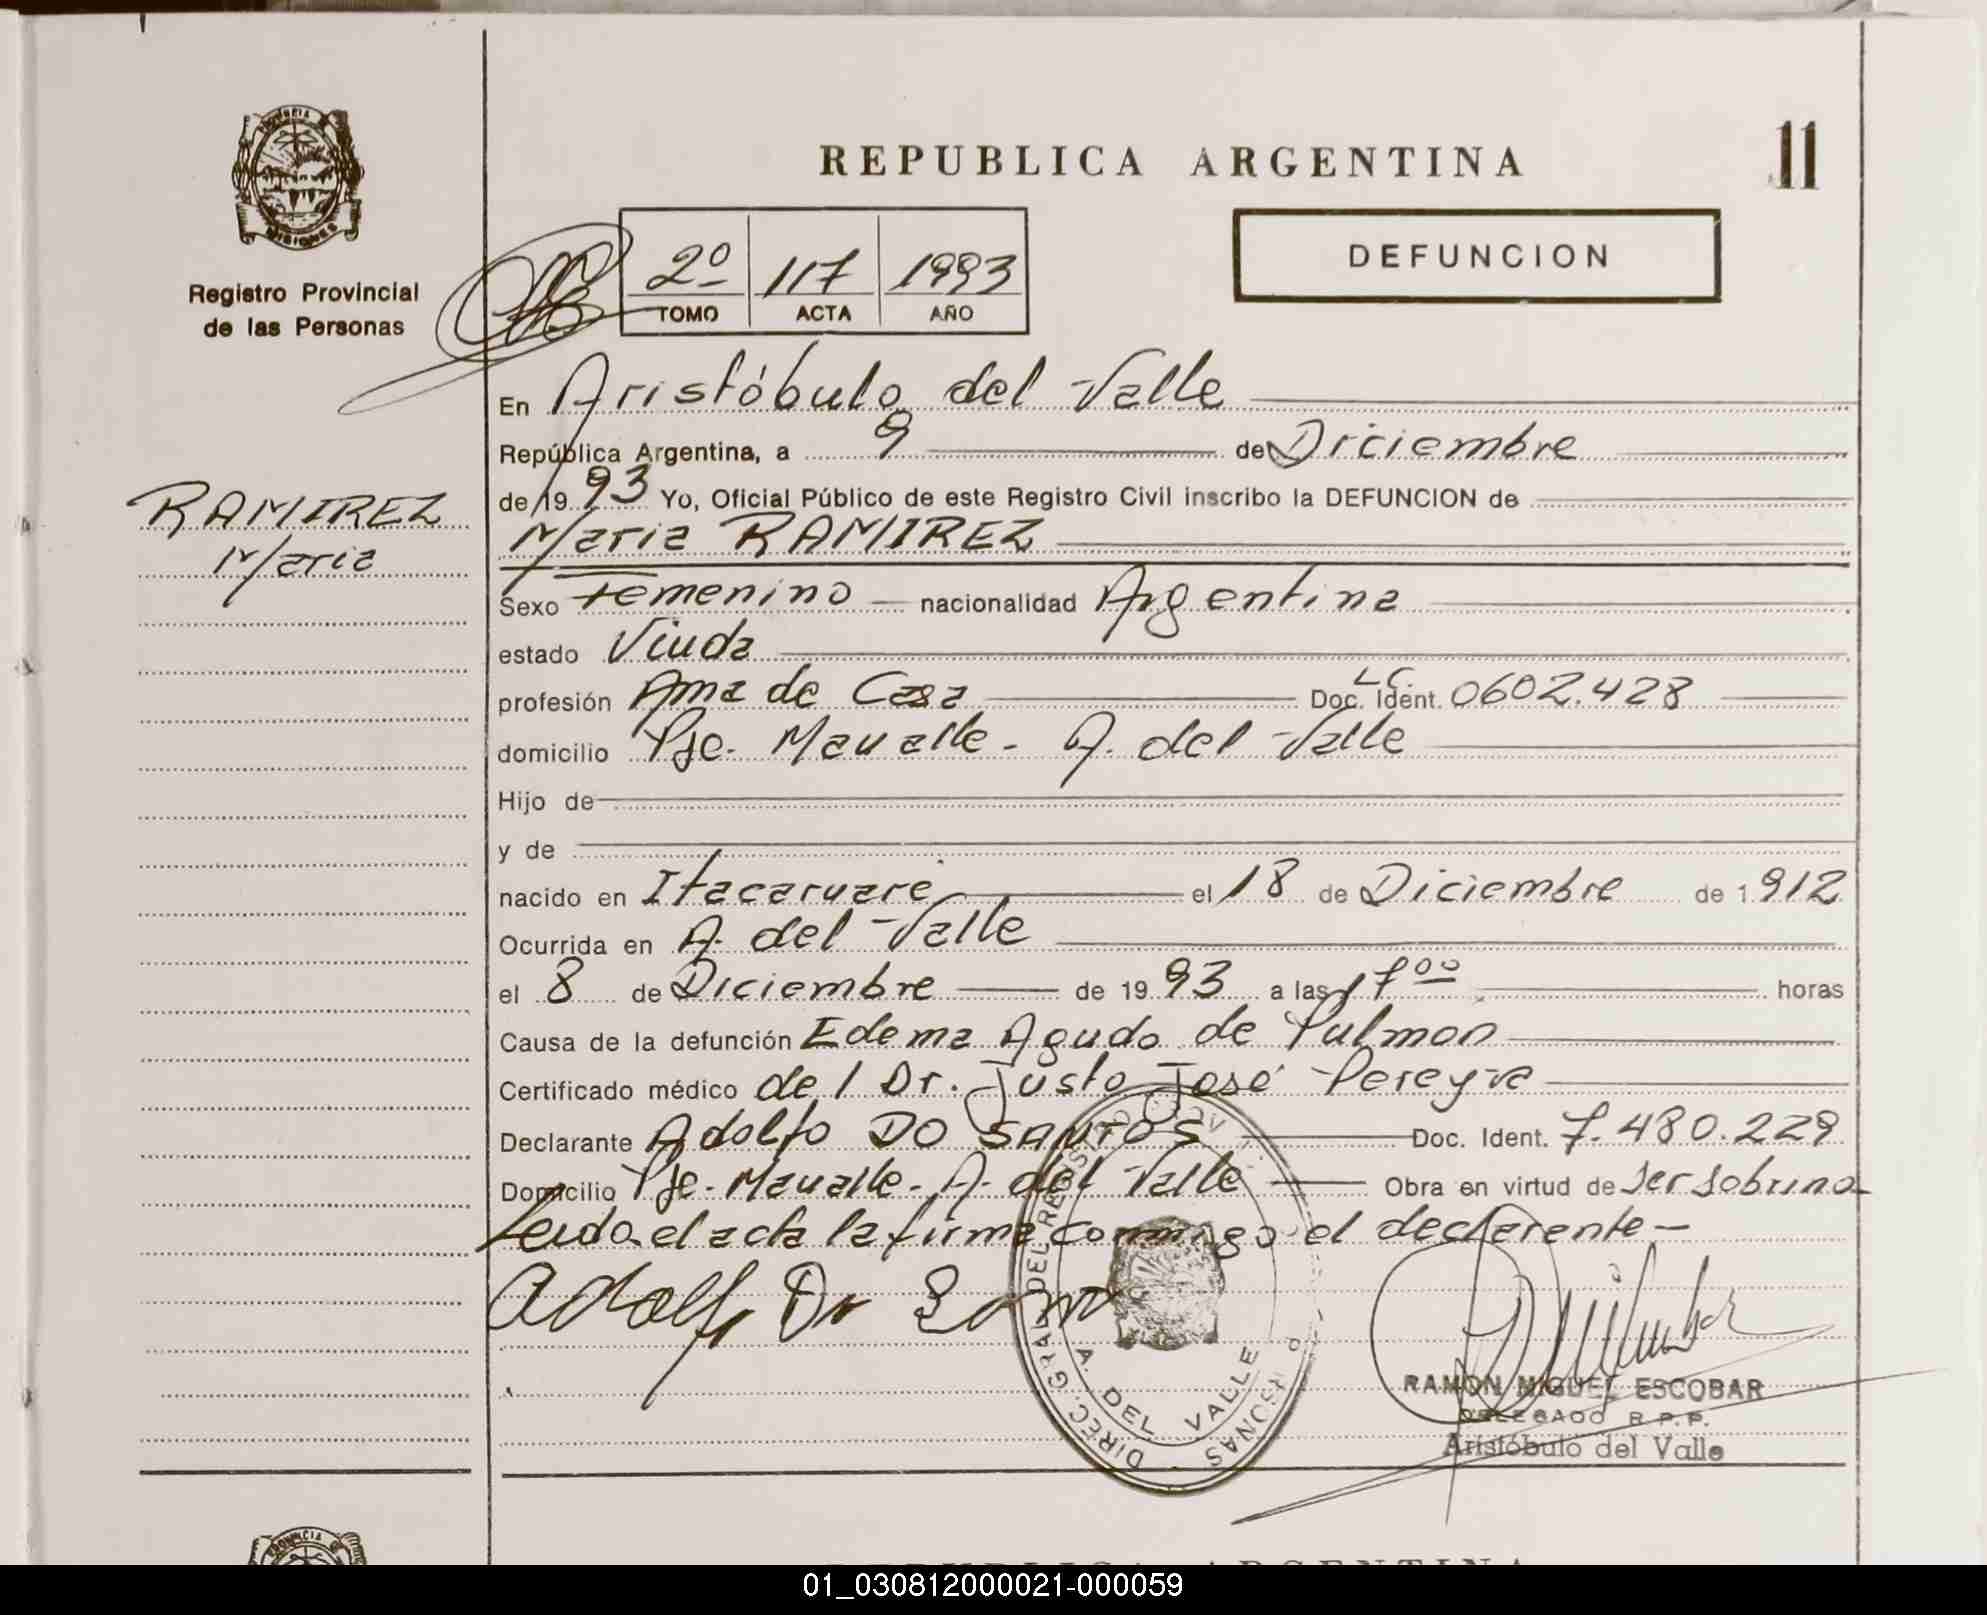 REPUBLICA ARGENTINA
11
PROVINCIA
MISIONES
Registro Provincial
de las Personas
2º 117 1993
TOMO ACTA AÑO
DEFUNCION
En Aristóbulo del Valle
República Argentina, a 9 de Diciembre
de 1993 Yo, Oficial Público de este Registro Civil inscribo la DEFUNCION de
RAMIREZ
Maria
Maria RAMIREZ
Sexo Femenino nacionalidad Argentina
estado Viuda
profesión Ama de Casa Doc. Ident. L.C. 0602.428
domicilio Pje. Mavalle - A. del Valle
Hijo de
y de
nacido en Itacaruaré el 18 de Diciembre de 1.912
Ocurrida en A. del Valle
el 8 de Diciembre de 1993 a las 17⁰⁰ horas
Causa de la defunción Edema Agudo de Pulmon
Certificado médico del Dr. Justo José Pereyra
Declarante Adolfo DO SANTOS Doc. Ident. 7.480.229
Domicilio Pje. Mavalle - A. del Valle Obra en virtud de ser sobrino
Leida el acta la firma conmigo el declarente -
Adolfo Do
DIREC. GRAL. DEL REGISTRO
A. DEL VALLE
RAMON MIGUEL ESCOBAR
DELEGADO R.P.P.
Aristóbulo del Valle
PROVINCIA
REPUBLICA ARGENTINA
01_030812000021-000059